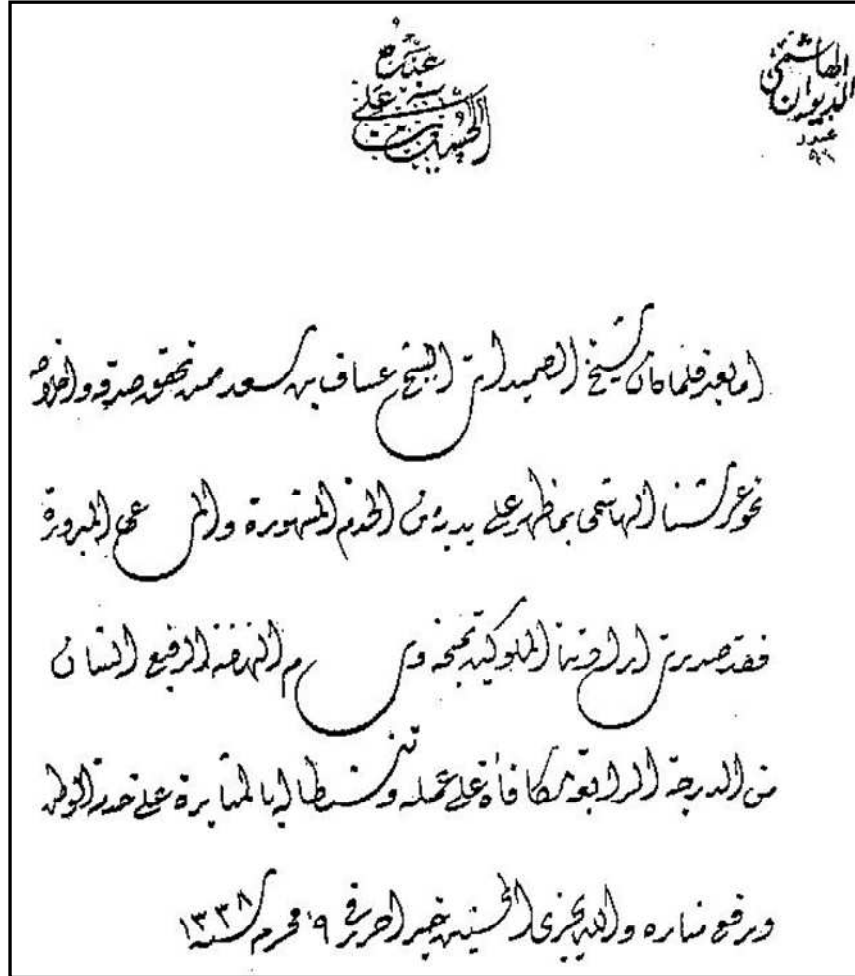 الديوان الهاشمي
عدد
الحسين بن علي
اما بعد فلما كان شيخ الصميدات الشيخ عساف بن سعد ممن تحقق صدقه واخلاصه
نحو عرشنا الهاشمي بما ظهر على يديه من الخدم المشهورة والمساعي المبرورة
فقد صدرت ارادتنا الملوكية بمنحه وسام النهضة الرفيع الشان
من الدرجة الرابعة مكافأة على عمله وتنشيطا له بالمثابرة على خدمة الوطن
ورفع مناره والله يجزى المحسنين خير احرر في ٩ محرم سنة ١٣٣٨